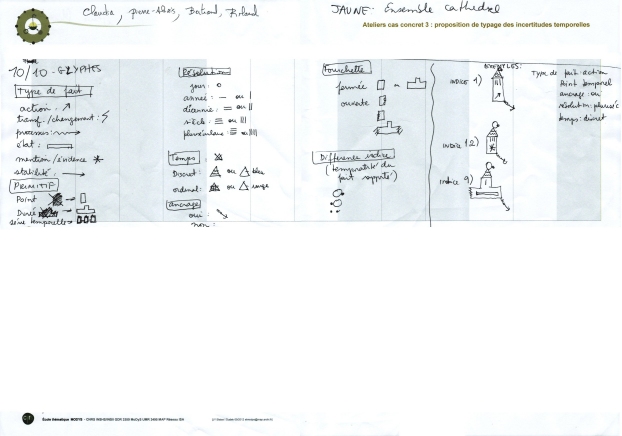 Claudia, pierre-Alais, Bertrand, Roland
JAUNE - Ensemble cathédral
Ateliers cas concret 3 : proposition de typage des incertitudes temporelles
10/10 - GLYPHES
Type de fait
action :
transf. /changement :
processus :
état :
mention / évidence
stabilité :
PRIMITIF
Point
Durée
série temporelle
Résolution
jour :
année : ou
décennie : ou
siècle : ou
plurséculaire : ou
Temps :
Discret : ou bleu
ordinal : ou rouge
ancrage
oui :
non :
Fourchette
fermée ou
ouverte
Différence indice
(temporalité du
fait rapporté)
EXEMPLES :
INDICE 1)
indice 12)
indice 9)
Type de fait : action
Point temporel
ancrage : oui
résolution : plurséc
temps : discret
École thématique MODYS